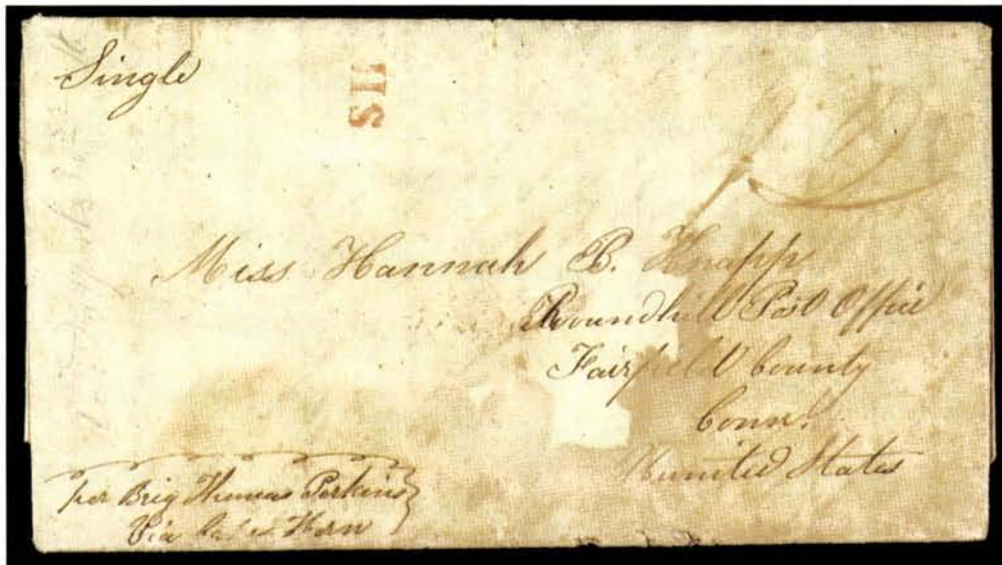 Single
SH
Miss Hannah B. Knapp
Roundhill Post Office
Fairfield County
Conn.
United States
per Brig Thomas Perkins
Via Cape Horn